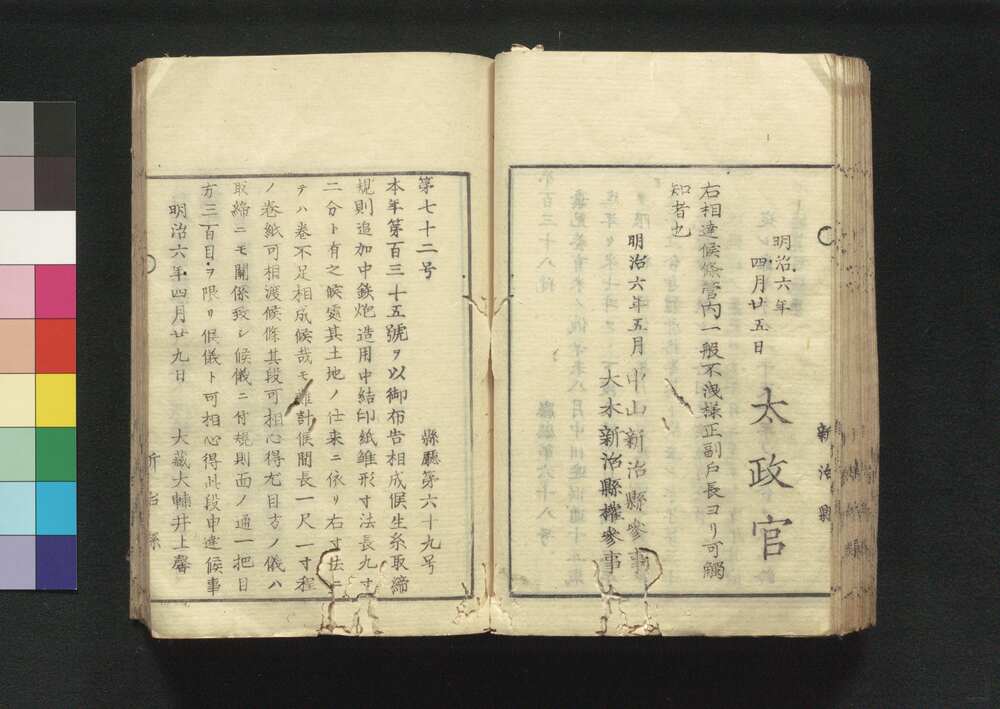 明治六年
四月廿五日
太政官
右相達候條管内一般不洩様正副戸長ヨリ可觸
知者也
明治六年五月
中山新治縣參事
大木新治縣權參事
新治縣
第七十二号
縣廳第六十九号
本年第百三十五號ヲ以御布告相成候生糸取締
規則追加中鉄炮造用中結印紙雛形寸法長九寸
二分ト有之候處其土地ノ仕来ニ依リ右寸法ニ
テハ巻不足相成候哉モ難計候間長一尺一寸程
ノ巻紙可相渡候條其段可相心得尤目方ノ儀ハ
取締ニモ關係致シ候儀ニ付規則面ノ通一把目
方三百目ヲ限リ候儀ト可相心得此段申達候事
明治六年四月廿九日
大藏大輔井上馨